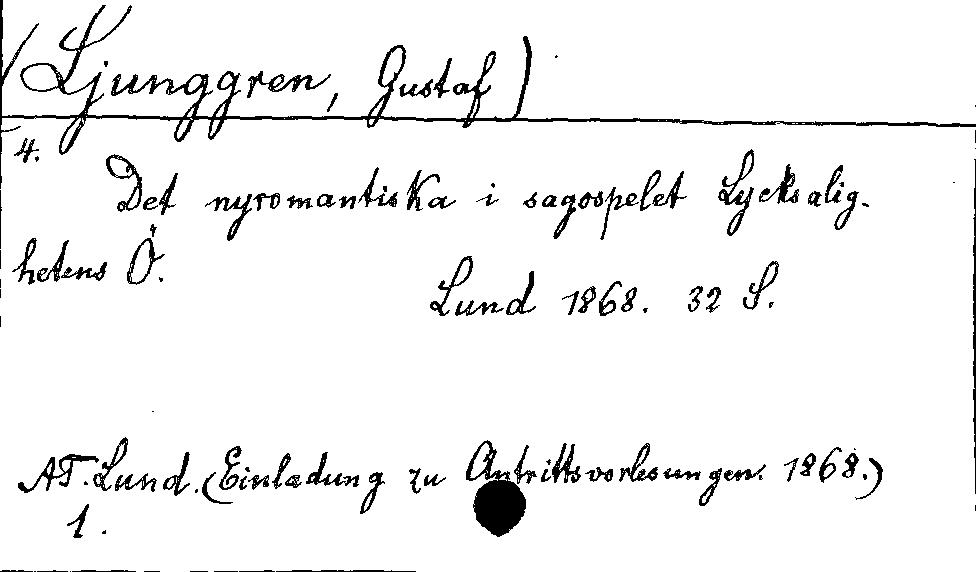 (Ljunggren, Gustaf)
4.
Det nyromantiska i sagospelet Lycksalig-
hetens Ö.
Lund 1868. 32 S.
AT. Lund. (Einladung zu Antrittsvorlesungen. 1868.)
1.